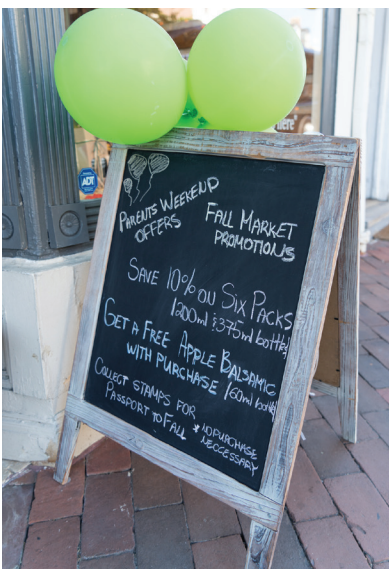 ADT
here"
PARENTS WEEKEND
OFFERS
FALL MARKET
PROMOTIONS
SAVE 10% ON SIX PACKS
200ml & 375ml bottles
GET A FREE APPLE BALSAMIC
WITH PURCHASE 60ml bottle
COLLECT STAMPS FOR
PASSPORT TO FALL
* NO PURCHASE
NECCESSARY